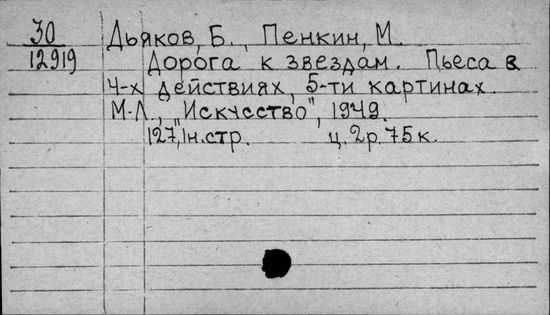 30 Дьяков, Б., Пенкин, М.
12919 Дорога к звездам. Пьеса в
4-х действиях, 5-ти картинах.
М-Л., "Искусство", 1949.
127, 1н.стр. ц. 2р. 75к.